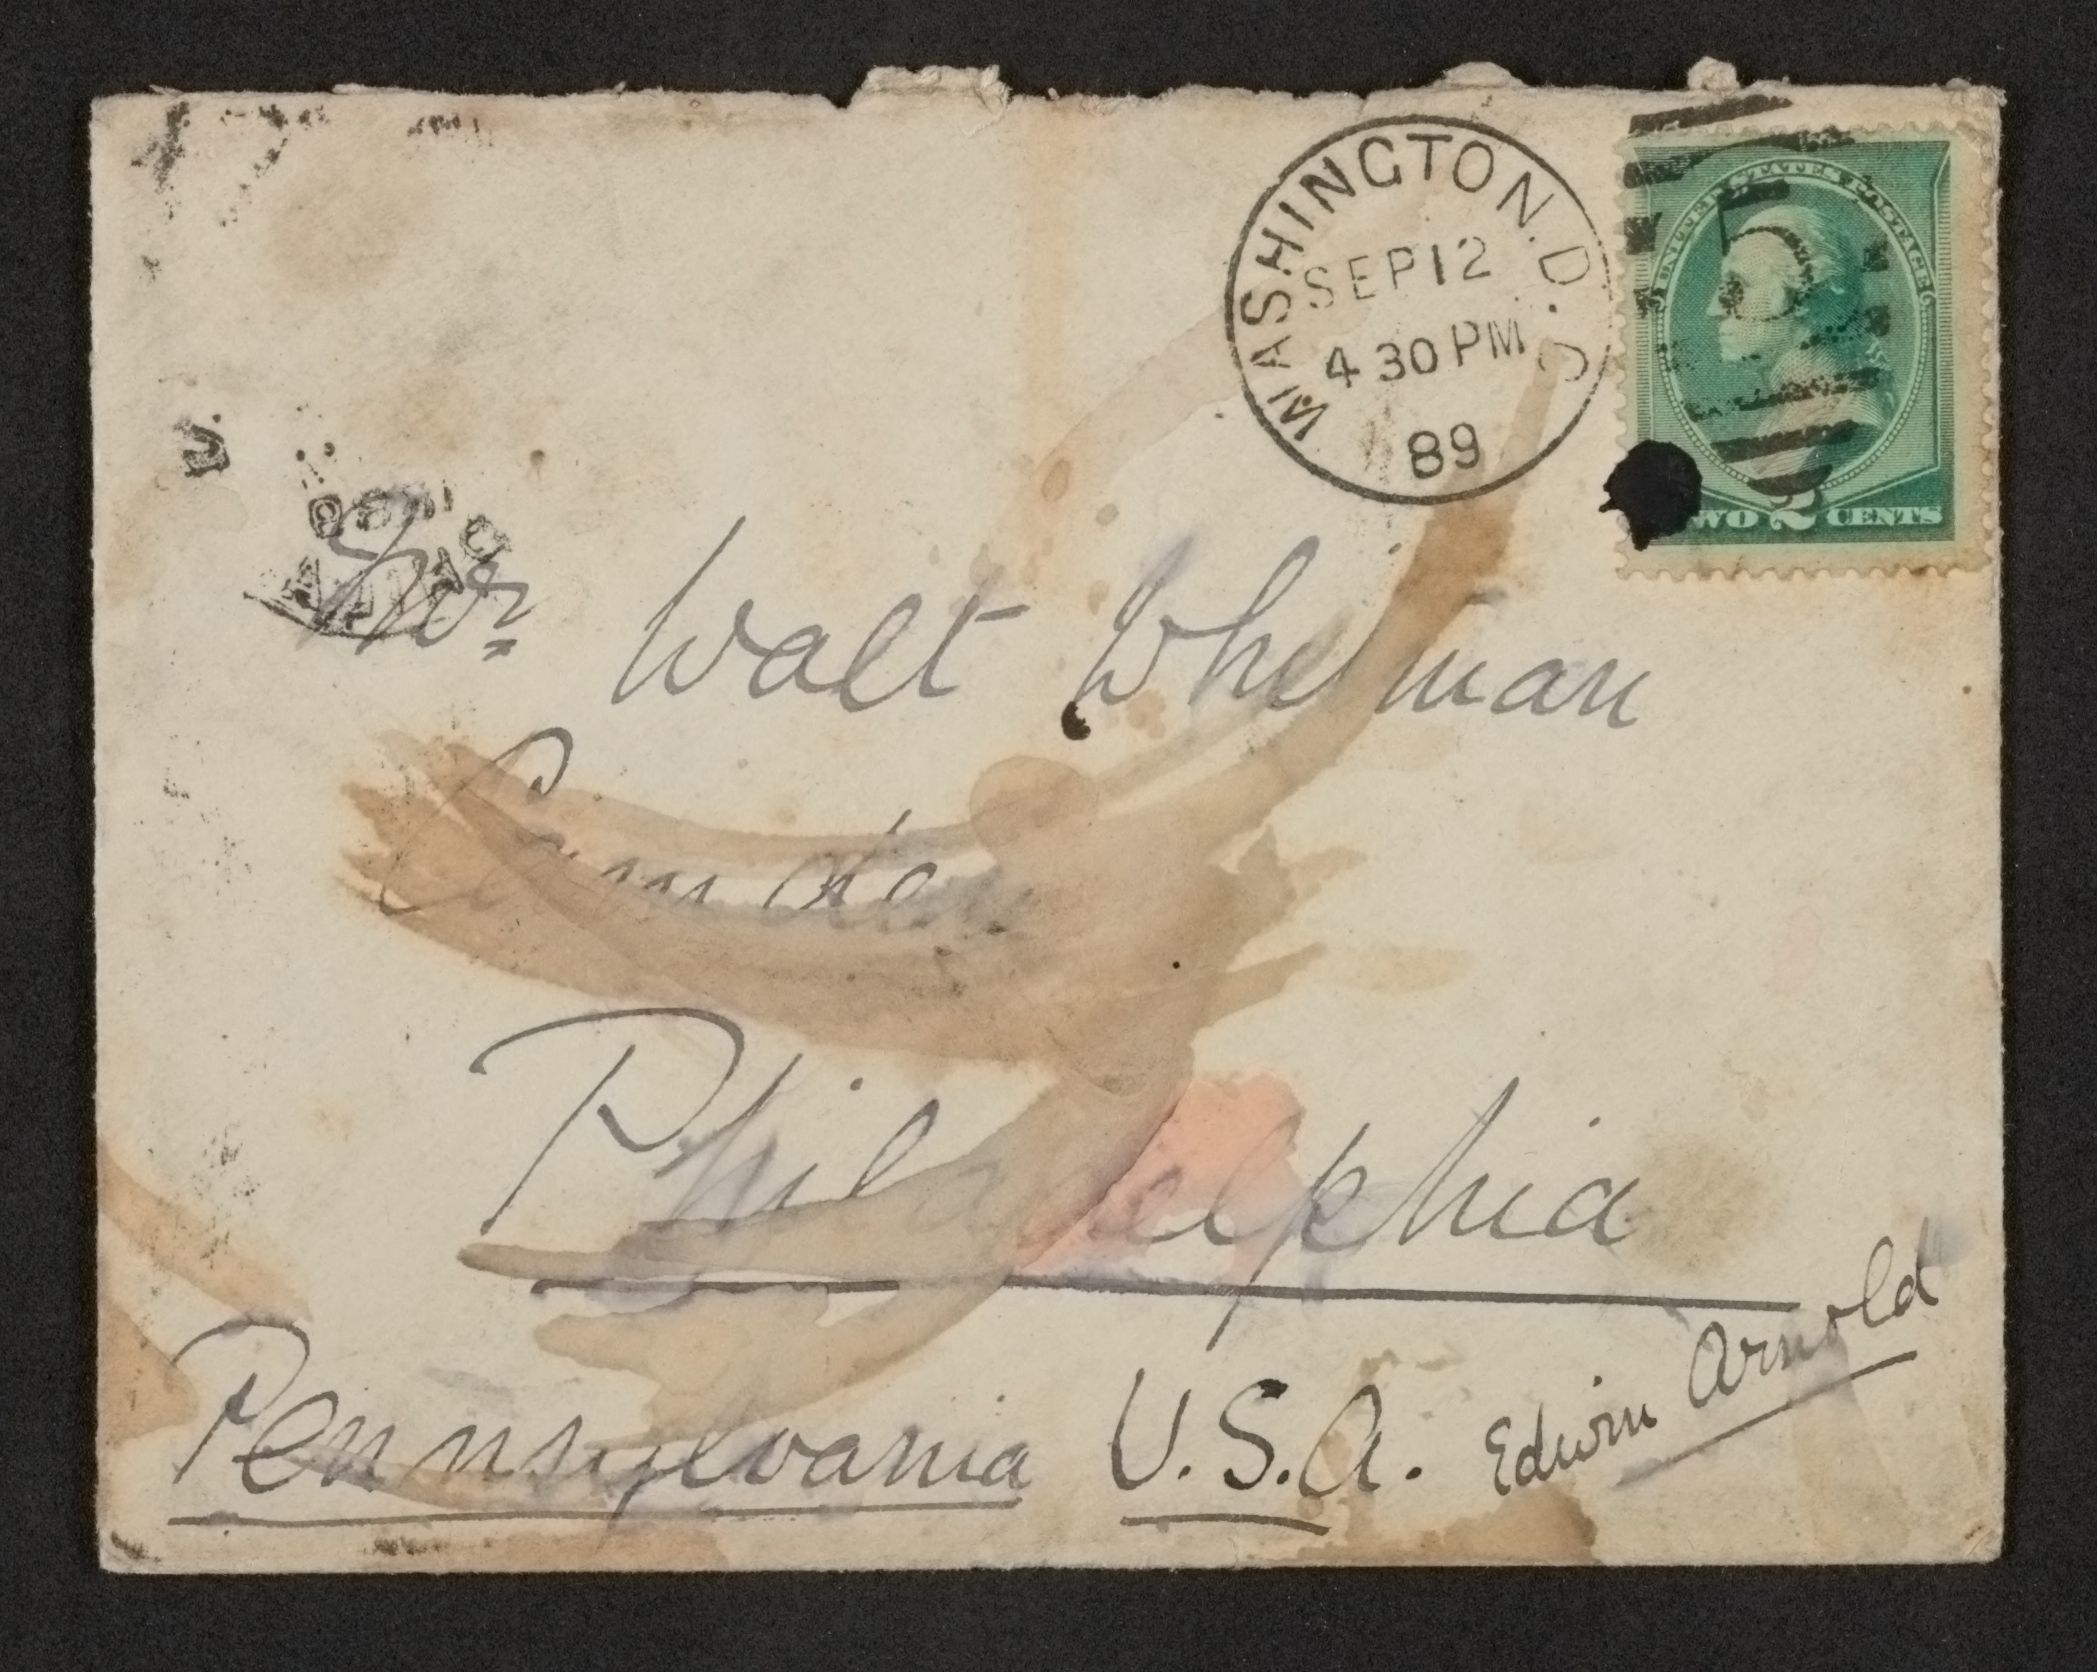 WASHINGTON. D. C.
SEP 12
4 30 PM
89
UNITED STATES POSTAGE
TWO 2 CENTS
Mr. Walt Whitman
Camden
Philadelphia
Pennsylvania U.S.A.
Edwin Arnold